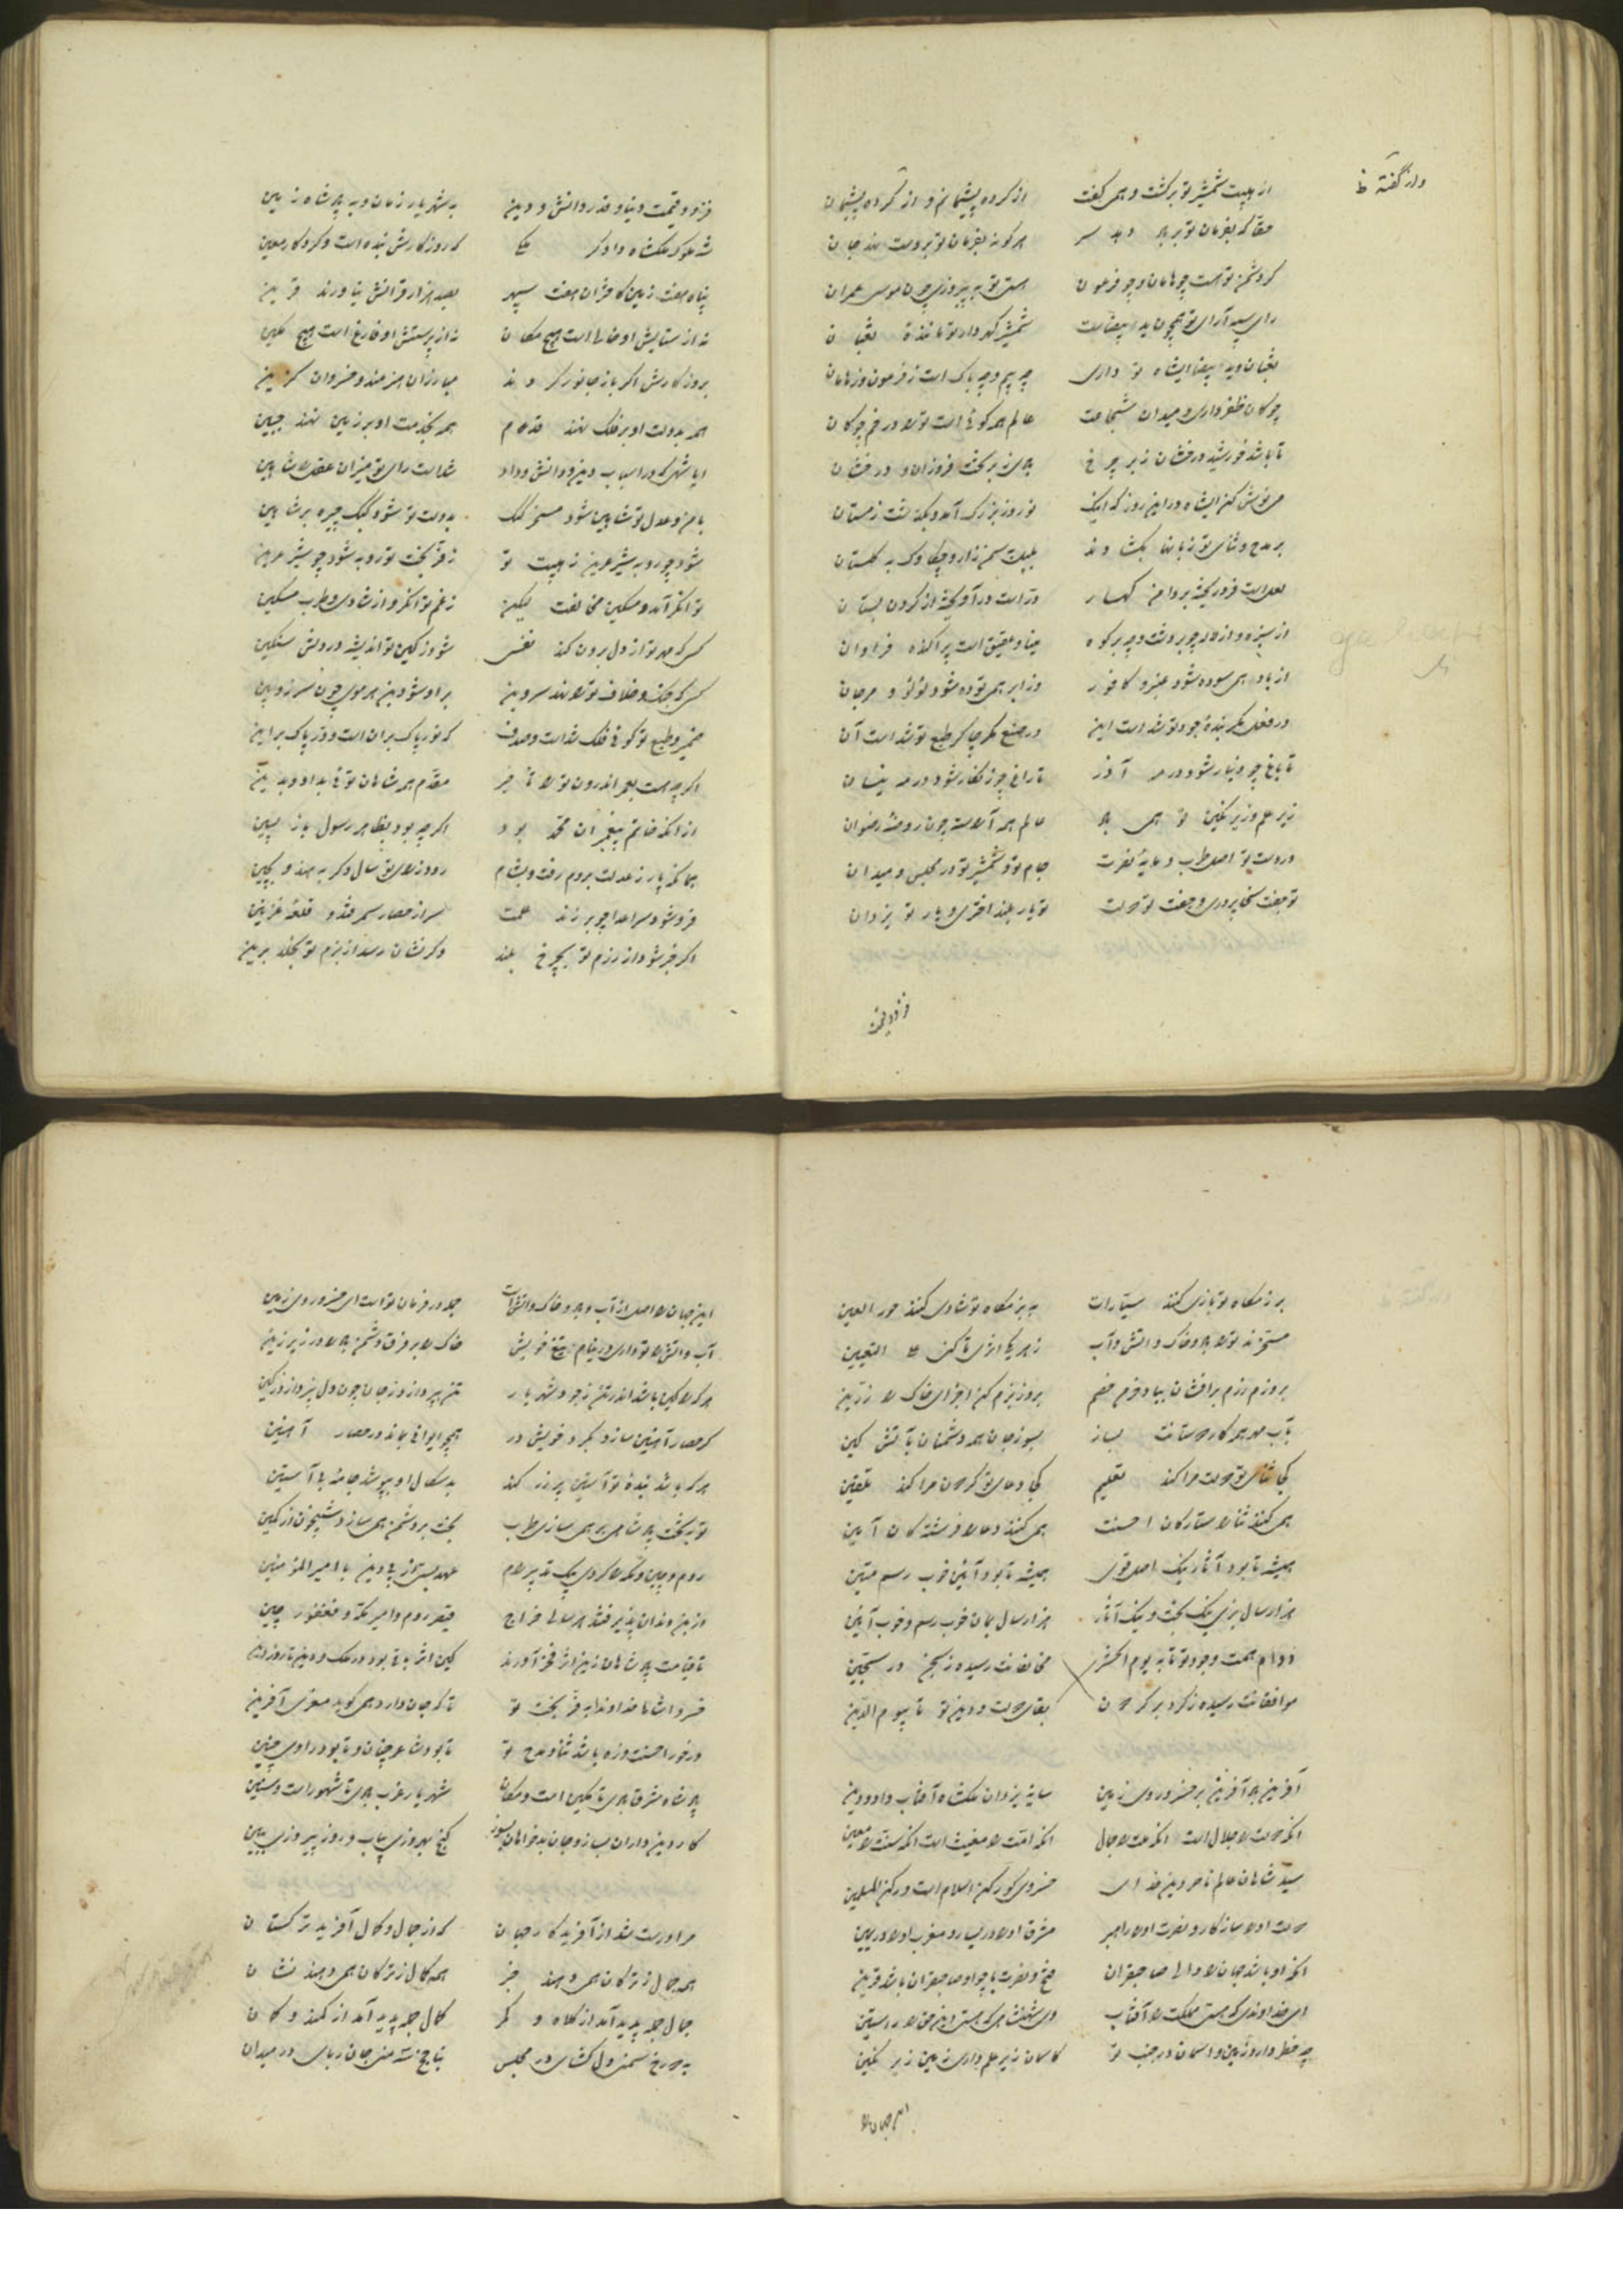 از هیبت شمشیر تو برگشت و همی گفت از کرده پشیمانم و از گفته پشیمان
واز گفته ظ
حقا که بفرمان تو بر باد دهد سر هر کو نه بفرمان تو بر دست نهد جان
گر دشمن تو هست چو هامان و چو فرعون هستی تو به پیروزی چون موسی عمران
رای سپه آرای تو همچون ید بیضاست شمشیر گهردار تو ماننده ثعبان
ثعبان و ید بیضا ای شاه تو داری چه بیم و چه باک است ز فرعون و ز هامان
چوگان ظفر داری و میدان شجاعت عالم همه گوئی است ترا در خم چوگان
تا باشد خورشید درخشان ز بر چرخ بادی ز بر تخت فروزان و درخشان
می نوش کن ای شاه درین روز که اینک نوروز بزرگ آمد و بگذشت زمستان
بر مدح و ثنای تو زبانها بگشادند بلبل به سمن زار و چکاوک به گلستان
لعل است فرو ریخته بر دامن کهسار در است در آویخته از گردن بستان
از سبزه و از لاله چو بر دشت و چه بر کوه مینا و عقیق است پراکنده فراوان
از باد همی سوده شود عنبر و کافور وز ابر همی توده شود لؤلؤ و مرجان
در فعل مگر بنده جود تو شد است این در صنع مگر چاکر طبع تو شد است آن
تا باغ چو دینار شود در مه آذر تا راغ چو زنگار شود در مه نیسان
زیر علم و زیر نگین تو همی باد عالم همه آراسته چون روضه رضوان
در دست تو اصل طرب و مایه نصرت جام تو و شمشیر تو در مجلس و میدان
تو جفت سخا پروری و جفت تو دولت تو یار بلند اختری و یار تو یزدان
فزود و قیمت
فزود و قیمت دنیا و قدر دانش و دین به شهریار زمان و به پادشاه زمین
شه ملوک ملکشاه دادگر ملکی که روزگارش بنده است و کردگار معین
پناه هفت زمین کافران هفت سپهر بصد هزار قرانش نیاورند قرین
نه از ستایش او خالی است هیچ مکان نه از پرستش او فارغ است هیچ مکین
بروزگارش اگر باز جانور گردند مبارزان هنرمند و خسروان گزین
همه بدولت او بر فلک نهند قدم همه بخدمت او بر زمین نهند جبین
ایا شهی که در اسباب دین و دانش و داد شد است رای تو میزان عقل را شاهین
بامن و عدل تو شاهین شود مسخر کبک بدولت تو شود کبک چیره بر شاهین
شود چو روبه شیر عرین ز هیبت تو ز فر بخت تو روبه شود چو شیر عرین
توانگر آمد و مسکین مخالفت لیکن ز غم توانگر و از شادی و طرب مسکین
کسی که مهر تو از دل برون کند نفسی شود ز کین تو اندیشه در دلش سنگین
کسی که جنگ و خلاف تو را نهد سر و بن بر او شود بن هر موی چون سر زوبین
ضمیر و طبع تو گوئی فلک شد است و صدف که نور پاک بر آن است و در پاک بر این
اگرچه هست بعصر اندرون ترا تأخیر مقدم همه شاهان توئی بداد و بدین
از آنکه خاتم پیغمبران محمد بود اگر چه بود بظاهر رسول باز پسین
چنانکه پار ز عدلت بروم رفت و بشام رود ز رای تو سال دگر به هند و بچین
فرو شود سر اعدا چو برزند علمت سر از حصار سمرقند و قلعه غزنین
اگر خبر شود از رزم تو بچرخ بلند وگر نشان رسد از بزم تو بخلد برین
برزمگاه تو بازی کنند سیارات به بزمگاه تو شادی کنند حور العین
مسخرند ترا باد و خاک و آتش و آب ز هر یکی اثری تا کنی علی التعیین
بروز رزم برافشان بباد خرمن خصم بروز بزم کن اجزای خاک را زرین
بآب مهر همه کار دوستانت بساز بسوز جان همه دشمنان بآتش کین
کجا ثنای تو دولت مرا کند تعلیم کجا دعای تو گردون مرا کند تلقین
همی کنند ثنا را ستارگان احسنت همی کنند دعا را فرشتگان آمین
همیشه تا بود آثار نیک اصل قوی همیشه تا بود آئین خوب رسم متین
هزار سال بزی نیک بخت و نیک آثار هزار سال بمان خوب رسم و خوب آئین
دوام همت وجود تو تا به یوم الحشر مخالفانت رسیده ز سجن در سجین
موافقانت رسیده ز گرد بر گردون بقای دولت و دین تو تا بیوم الدین
آفرین باد آفرین بر خسرو روی زمین سایه یزدان ملکشاه آفتاب داد و دین
آنکه دولت را جلال است آنکه ملت را جمال آنکه امت را مغیث است آنکه سنت را معین
سید شاهان عالم ناصر دین خدای خسروی کو رکن اسلام است و رکن المسلمین
دولت او را سازگار و نصرت او را راهبر مشرق او را در یسار و مغرب او را در یمین
آنکه او باشد جهان را والی صاحبقران فتح و نصرت با چو او صاحبقران باشد قرین
ای خداوندی که هستی مملکت را آفتاب وی شهنشاهی که هستی ایزد حق را راستین
چه خطر دارد زمین و آسمان در جنب تو کاسمان زیر علم داری زمین زیر نگین
این جهان را
این جهان را اصل از آب و باد و خاک و آتش است جمله در فرمان تو است ای خسرو روی زمین
آب و آتش را تو داری در نیام تیغ خویش خاک را بر فرق دشمن باد را در زیر زین
هر که را کین باشد اندر تن ز جود شهریار تن بپردازد ز جان چون دل نپردازد ز کین
گر حصار آهنین سازد بگرد خویش در همچو ایرانی بماند در حصار آهنین
هر که باشد بنده تو آستین پر زر کند بدسگال او بپوشد جامه بی آستین
تو به تخت پادشاهی بر همی سازی طرب بخت بر دشمن همی سازد شبیخون از کمین
روم و چین و مکه را کردی بیک تدبیر رام عهد بستی از پی دین با امیر المؤمنین
از بن دندان پذیرفتند هر سالی خراج قیصر روم و امیر مکه و فغفور چین
تا قیامت پادشاهان زین اثر فخر آورند کین اثر باقی بود در ملک و دین تا روز دین
خسروا شاها خداوندا به فر بخت تو تا که جان دارد همی گوید معزی آفرین
در خور احسنت و زه باشد ثنا و مدح تو تا بود شاعر چنان و تا بود راوی چنین
پادشاه شرق بادی تا مکین است و مکان شهریار غرب بادی تا شهور است و سنین
کار دین داران بساز و جان بدخواهان بسوز گنج بهروزی بیاب و روز پیروزی ببین
مرا درست شد از آفریدگار جهان که از جمال و کمال آفرید ترکستان
همه جمال ز ترکان همی دهند خبر همه کمال ز ترکان همی دهند نشان
جمال جمله پدید آمد از کلاه و کمر کمال جمله پدید آمد از کمند و کمان